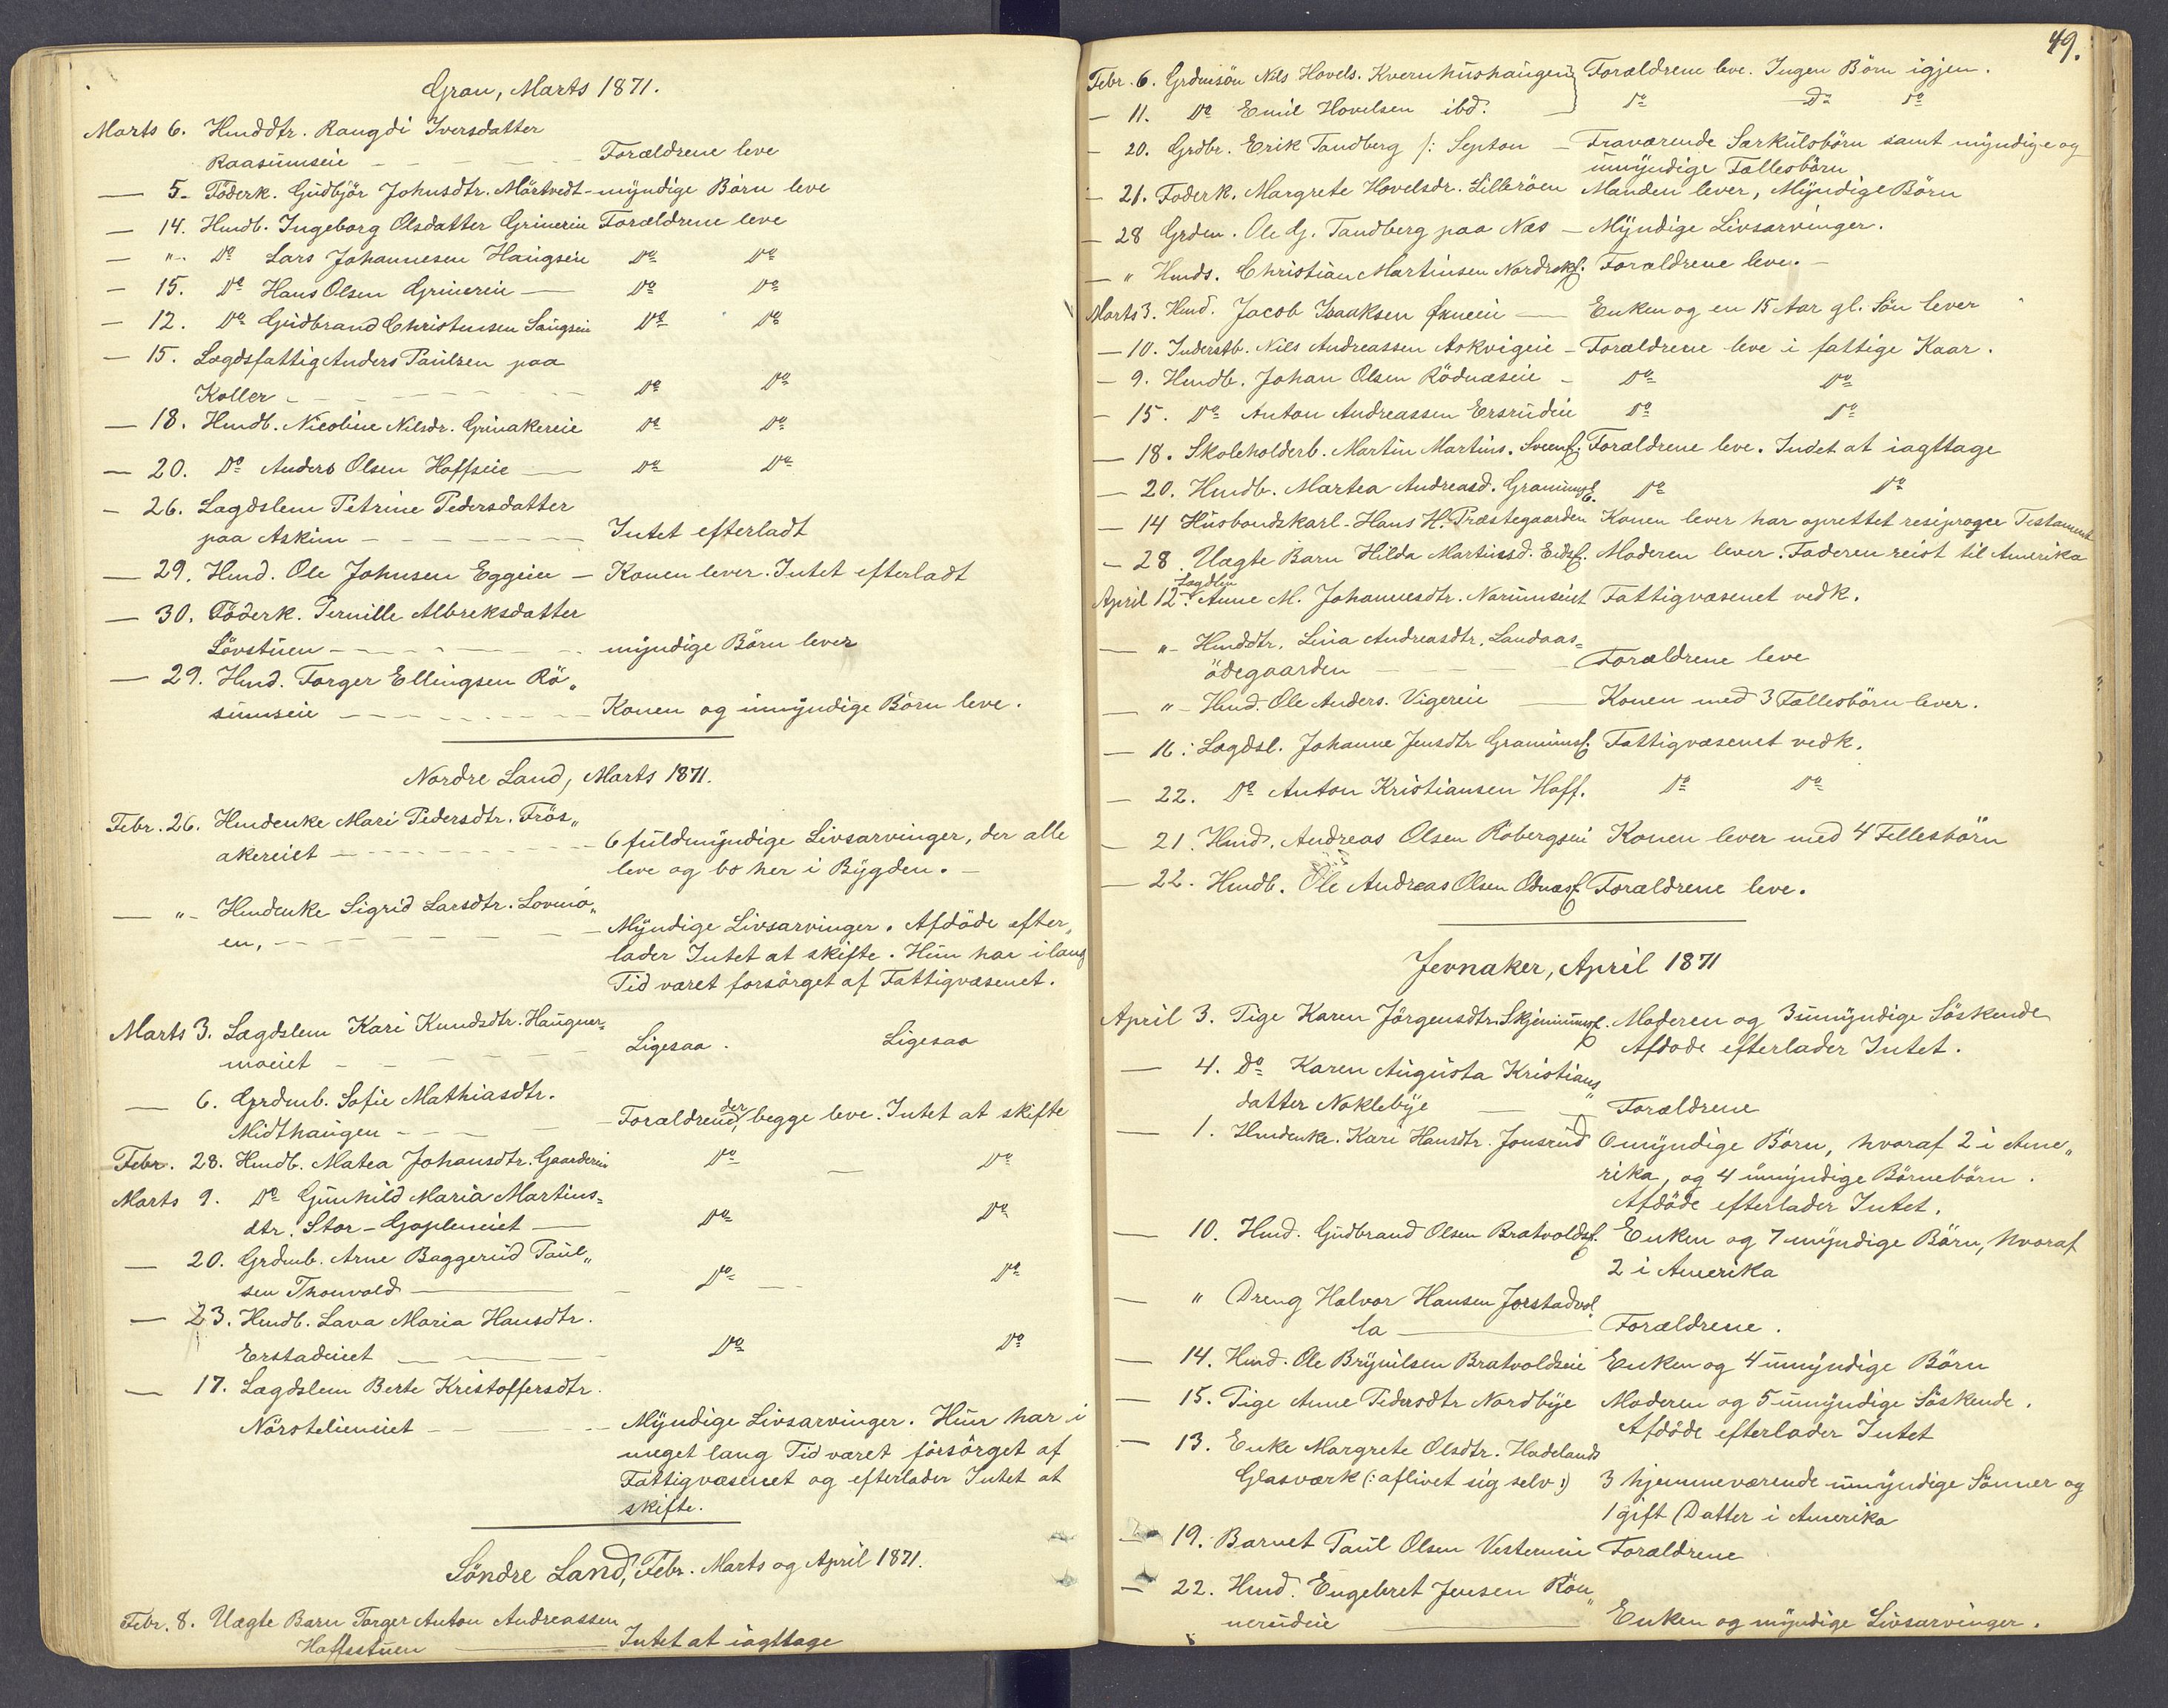 Gran, Marts 1871.
Marts 6. Hmddtr. Rangdi Iversdatter
Raasumseie - - - - Forældrene leve
— 5. Föderk. Gudbjör Johnsdtr. Mörtvedt - myndige Börn leve
— 14. Hmdb. Ingeborg Olsdatter Grinereie Forældrene leve
— " - Do Lars Johannesen Haugseie Do Do
— 15. Do Hans Olsen Grinereie — Do Do
— 12. Do Gudbrand Christensen Saugseie Do Do
— 15. Lægdsfattig Anders Paulsen paa
Koller - - - - Do Do
— 18. Hmdb. Nicoline Nilsdr. Grinakereie Do Do
— 20. Do Anders Olsen Hoffseie — Do Do
— 26. Lagdslem Petrine Pedersdatter
paa Askim - - - - Intet efterladt
— 29. Hmd. Ole Johnsen Eggeie — Konen lever. Intet efterladt
— 30. Föderk. Pernille Albreksdatter
Lövstuen - - - - myndige Börn lever
— 29. Hmd. Torger Ellingsen Rö„
sumseie - - - - Konen og umyndige Börn leve.
Nordre Land, Marts 1871.
Febr. 26. Hmdenke Mari Pedersdtr. Frös„
akereiet - - - - 6 fuldmyndige Livsarvinger, der alle
leve og bo her i Bygden. -
— " - Hmdenke Sigrid Larsdtr. Lovmö„
en, - - - - Myndige Livsarvinger. Afdöde efter„
lader Intet at skifte. Hun har i lang
Tid været forsörget af Fattigvæsenet.
Marts 3. Lægdslem Kari Knudsdtr. Haugner„
moeiet - - - - Ligesaa. Ligesaa
— 6. Grdmb. Sofie Mathiasdtr.
Midthaugen - - - - Forældrene, der begge leve. Intet at skifte
Febr. 28. Hmdb. Matea Johansdtr. Gaardereie Do — Do
Marts 9. Do Gunhild Maria Martins„
dtr. Stor-Gopleneiet — Do Do
— 20. Grdmb. Arne Baggerud Paul„
sen Thonvold — Do — Do
— 23. Hmdb. Lava Maria Hansdtr.
Erstadeiet — — Do Do
— 17. Lægdslem Berte Kristoffersdtr.
Nörstelieneiet - - - - Myndige Livsarvinger. Hun har i
meget lang Tid været forsörget af
Fattigvæsenet og efterlader Intet at
skifte.
Söndre Land, Febr. Marts og April 1871.
Febr. 8. Uægte Barn Torger Anton Andreassen
Hoffsstuen — Intet at iagttage
49.
Febr. 6. Grdmsön Nils Hovels. Kvernhushaugen } Forældrene leve. Ingen Börn igjen.
— 11. Do Emil Hovelsen ibd. Do Do Do
— 20. Grdbr. Erik Tandberg /: Septon — Fraværende Særkulsbörn samt myndige og
umyndige Fællesbörn
— 21. Foderk. Margrete Hovelsdr. Lilleröen Manden lever, Myndige Börn
— 28 Grdm. Ole G. Tandberg paa Næs — Myndige Livsarvinger.
— " Hmds. Christian Martinsen Nordrokf. Forældrene leve. —
Marts 3. Hmd. Jacob Isaaksen — Enken og en 15 Aar gl. Sön lever
— 10. Inderstb. Nils Andreassen Askvigeie — Forældrene leve i fattige Kaar.
— 9. Hmdb. Johan Olsen Rödnæseie — Do Do
— 15. Do Anton Andreassen Ersrudeie Do Do
— 18. Skoleholderb. Martin Martins. Sveenf. Forældrene leve. Intet at iagttage
— 20. Hmdb. Martea Andreasd. Gramumsf. Do Do
— 14 Husbondskarl - Hans H. Præstegaarden Konen lever har oprettet resiproqce Testament
— 28. Uægte Barn Hilda Martinsd. Eidsf. Moderen lever. Faderen reist til Amerika
April 12. Lægdlm Anne M. Johannesdtr. Narumseiet Fattigvæsenet vedk.
— " - Hmddtr. Lina Andreasdtr. Landaas„
ödegaarden — — Forældrene leve
— " - Hmd. Ole Anders. Vigereie — Konen med 3 Fællesbörn lever.
— 16: Lægdsl. Johanne Jensdtr Gramumsf. Fattigvæsenet vedk.
— 22. Do Anton Kristiansen Hoff. Do Do
— 21. Hmd. Andreas Olsen Robergseie Konen lever med 4 Fellesbörn
— 22. Hmdb. Ole Andreas Olsen Odnæsf. Forældrene leve.
Jevnaker, April 1871
April 3. Pige Karen Jörgensdtr. Skjerumsf. Moderen og 3 umyndige Söskende
Afdode efterlader Intet.
— 4. Do Karen Augusta Kristians„
datter Noklebye — — Forældrene
— 1. Hmdenke. Kari Hansdtr. Jonsrud 6 myndige Börn, hvoraf 2 i Ame„
rika, og 4 umyndige Börnebörn.
Afdöde efterlader Intet.
— 10. Hmd. Gudbrand Olsen Bratvoldsf. Enken og 7 myndige Börn, hvoraf
2 i Amerika
— " Dreng Halvor Hansen Jorstadvol„
la — Forældrene.
— 14. Hmd. Ole Brynilsen Bratvoldseie Enken og 4 umyndige Börn
— 15. Pige Anne Pedersdtr Nordbye Moderen og 5 umyndige Söskende.
Afdöde efterlader Intet
— 13. Enke Margrete Olsdtr. Hadelands
Glasværk (: aflivet sig selv :) 3 hjemmeværende umyndige Sönner og
1 gift Datter i Amerika
— 19. Barnet Paul Olsen Vesterneie Forældrene
— 22. Hmd. Engebret Jensen Rön„
nerudeie — Enken og myndige Livsarvinger.